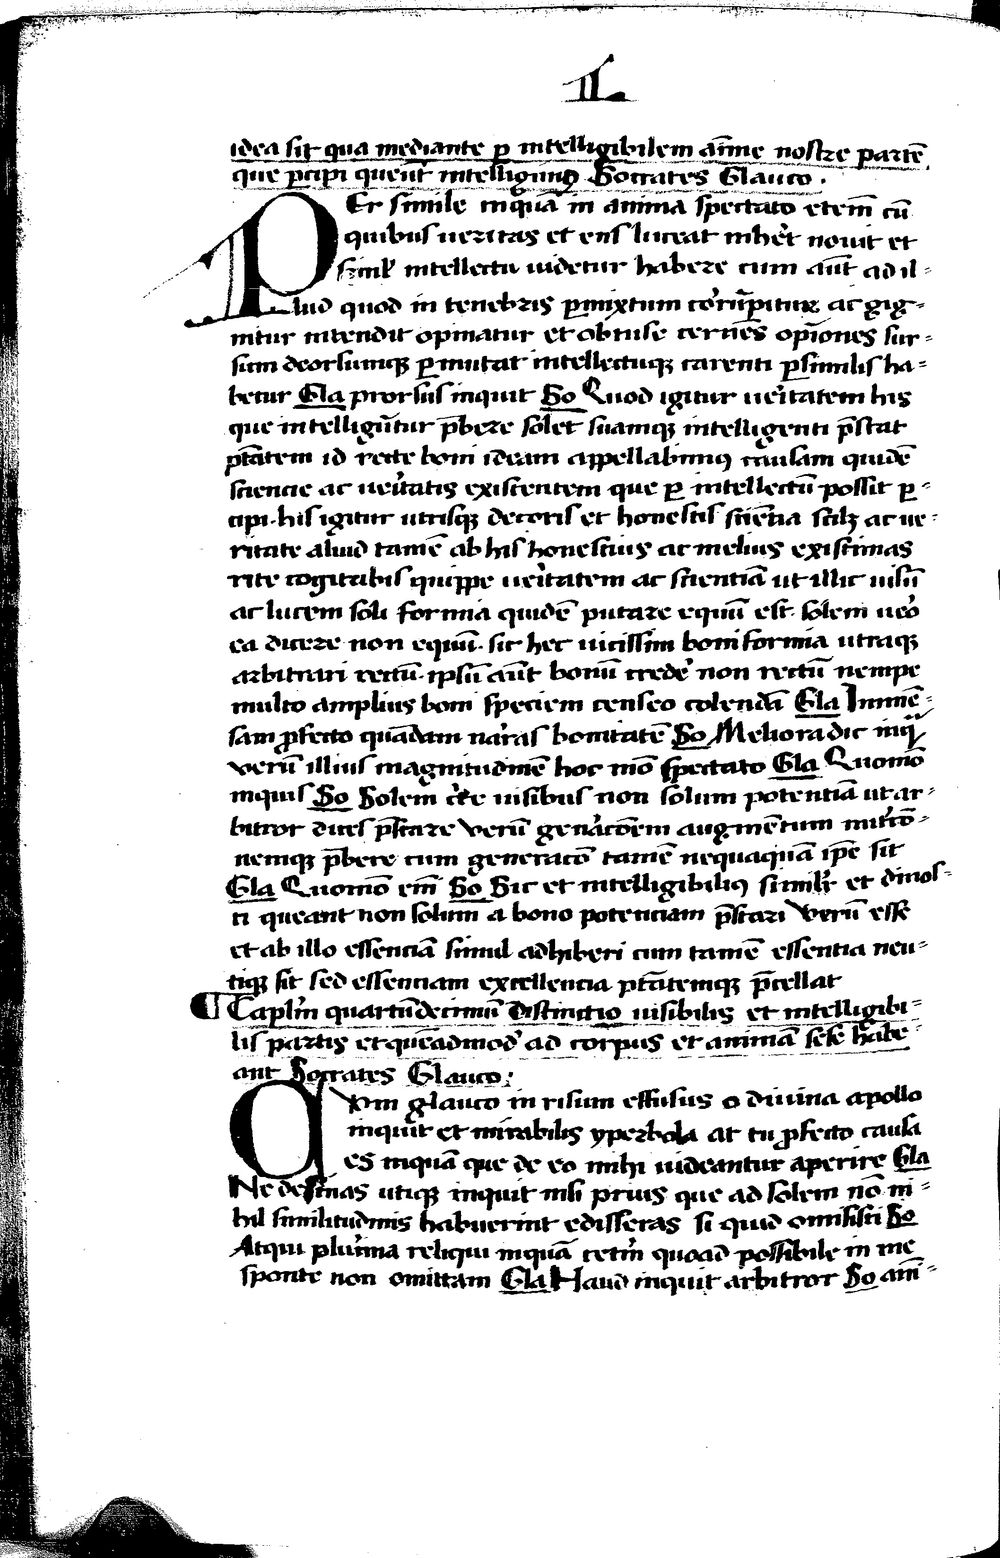 II
idea sit qua mediante p intelligibilem aīme nostre partē
que pcipi queūt intelligimꝰ Socrates Glauco .
PEr simile inquā in anima spectato etem̄ cū
quibus ueritas et ens luceat inhe't nouit et
simil' intellectu uidetur habere cum aūt ad il=
lud quod in tenebris pmixtum cor'upitur ac gig=
nitur intendit opinatur et obtuse cernēs opīones sur=
sum deorsumqꝫ pmutat intellectuqꝫ carenti psimilis ha=
betur Gla prorsus inquit So Quod igitur ue'itatem his
que intelligūtur p̄bere solet suamqꝫ intelligenti p̄stat
ptātem id recte boni ideam appellabimꝰ causam quidē
sciencie ac ue'itatis existentem que p intellectū possit p=
cipi. his igitur utrisqꝫ decoris et honestis sciētia scilꝫ ac ue=
ritate aliud tamē ab his honestius ac melius existimas
rite cogitabis quippe ue'itatem ac scientiā ut illic uisū
ac lucem soli formia quidē putare equū est. solem ue'o
ea dicere non equū. sic hec uicissim boniformia utraqꝫ
arbitrari rectū. ipsū aūt bonū crede' non rectū nempe
multo amplius boni speciem censeo colendā Gla Inmē=
sam pfecto quādam na'ras bonitatē So Meliora dic inq̄
verū illius magnitudinē hoc mō spectato Gla Quomō
inquis So Solem c'te uisibus non solum potentiā ut ar=
bitror dices p̄stare verū gen'acōem augmētum nut'cō=
nemqꝫ p̄bere cum generacō tamē nequaquā ip̄e sit
Gla Quomō em̄ So Sic et intelligibilibꝰ simili' et dinos=
ci queant non solum a bono potenciam p̄stari verū esse
et ab illo essenciā simul adhiberi cum tamē essentia neu=
tiqꝫ sit sed essenciam excellencia ptātemqꝫ p̄cellat
¶ Caplm̄ quartūdecimū Distinctio uisibilis et intelligibi=
lis partis et quēadmod' ad corpus et animā sese habe
ant Socrates Glauco :
QVm glauco in risum effusus o diuina apollo
inquit et mirabilis yperbola at tu pfecto causa
es inquā que de eo mihi uideantur aperire Gla
Ne desinas utiqꝫ inquit nisi prius que ad solem nō ni=
hil similitudinis habuerint edisseras si quid omisisti So
Atqui plu'ima reliqui inquā cetm̄ quoad possibile in me
sponte non omittam Gla Haud inquit arbitror So